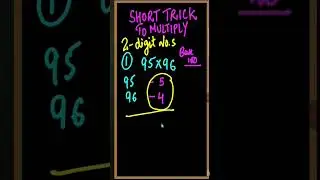 SHORT TRICK
TO MULTIPLY
2-digit no.s
① 95×96 Base 100
95 5
96 -4